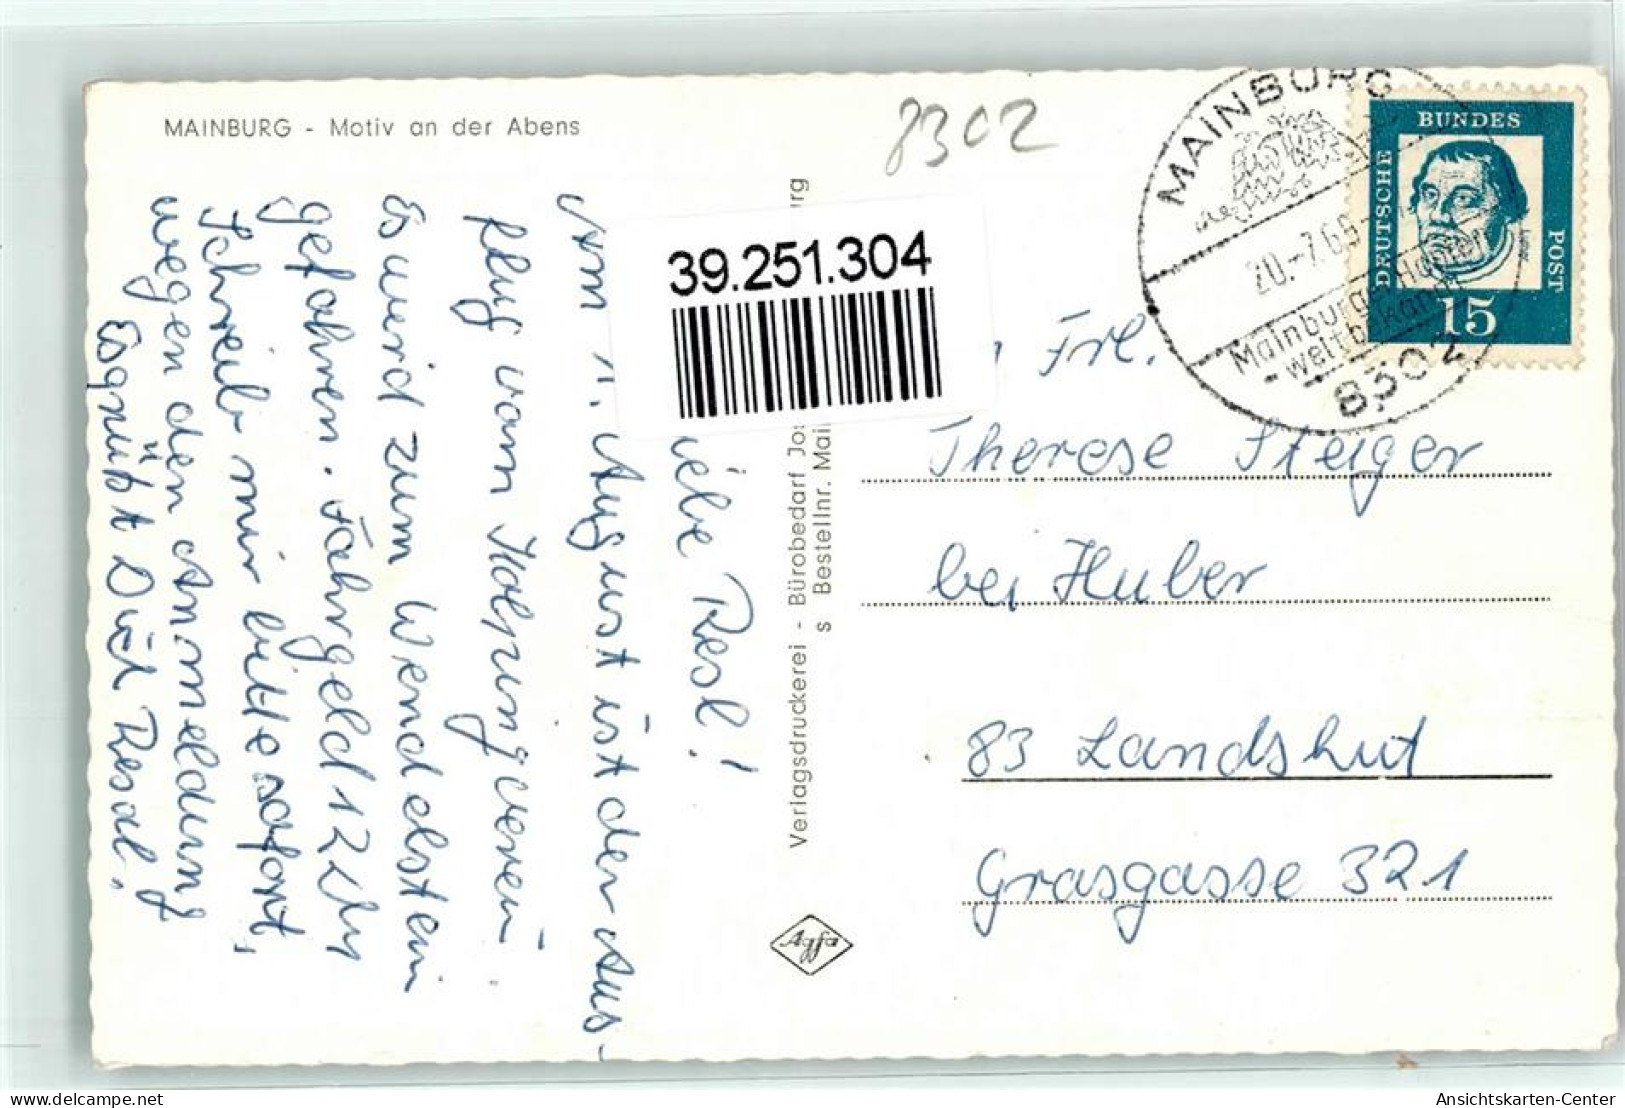 MAINBURG - Motiv an der Abens
8302
39.251.304
MAINBURG
20.-7.65
Mainburgs Hopfen
- weltbekannt
8302
DEUTSCHE
BUNDES
POST
15
Luther
Frl.
Therese Steiger
bei Huber
83 Landshut
Grasgasse 321
Verlagsdruckerei - Bürobedarf
Bestellnr.
Agfa
iebe Resl!
Am August ist der Aus-
flug vom Kolpingverein.
Es wird zum Wendelstein
gefahren. Fahrgeld 12
Schreib mir bitte sofort,
wegen der Anmeldung
Es grüßt Dich Resal.
delcampe.net
Ansichtskarten-Center